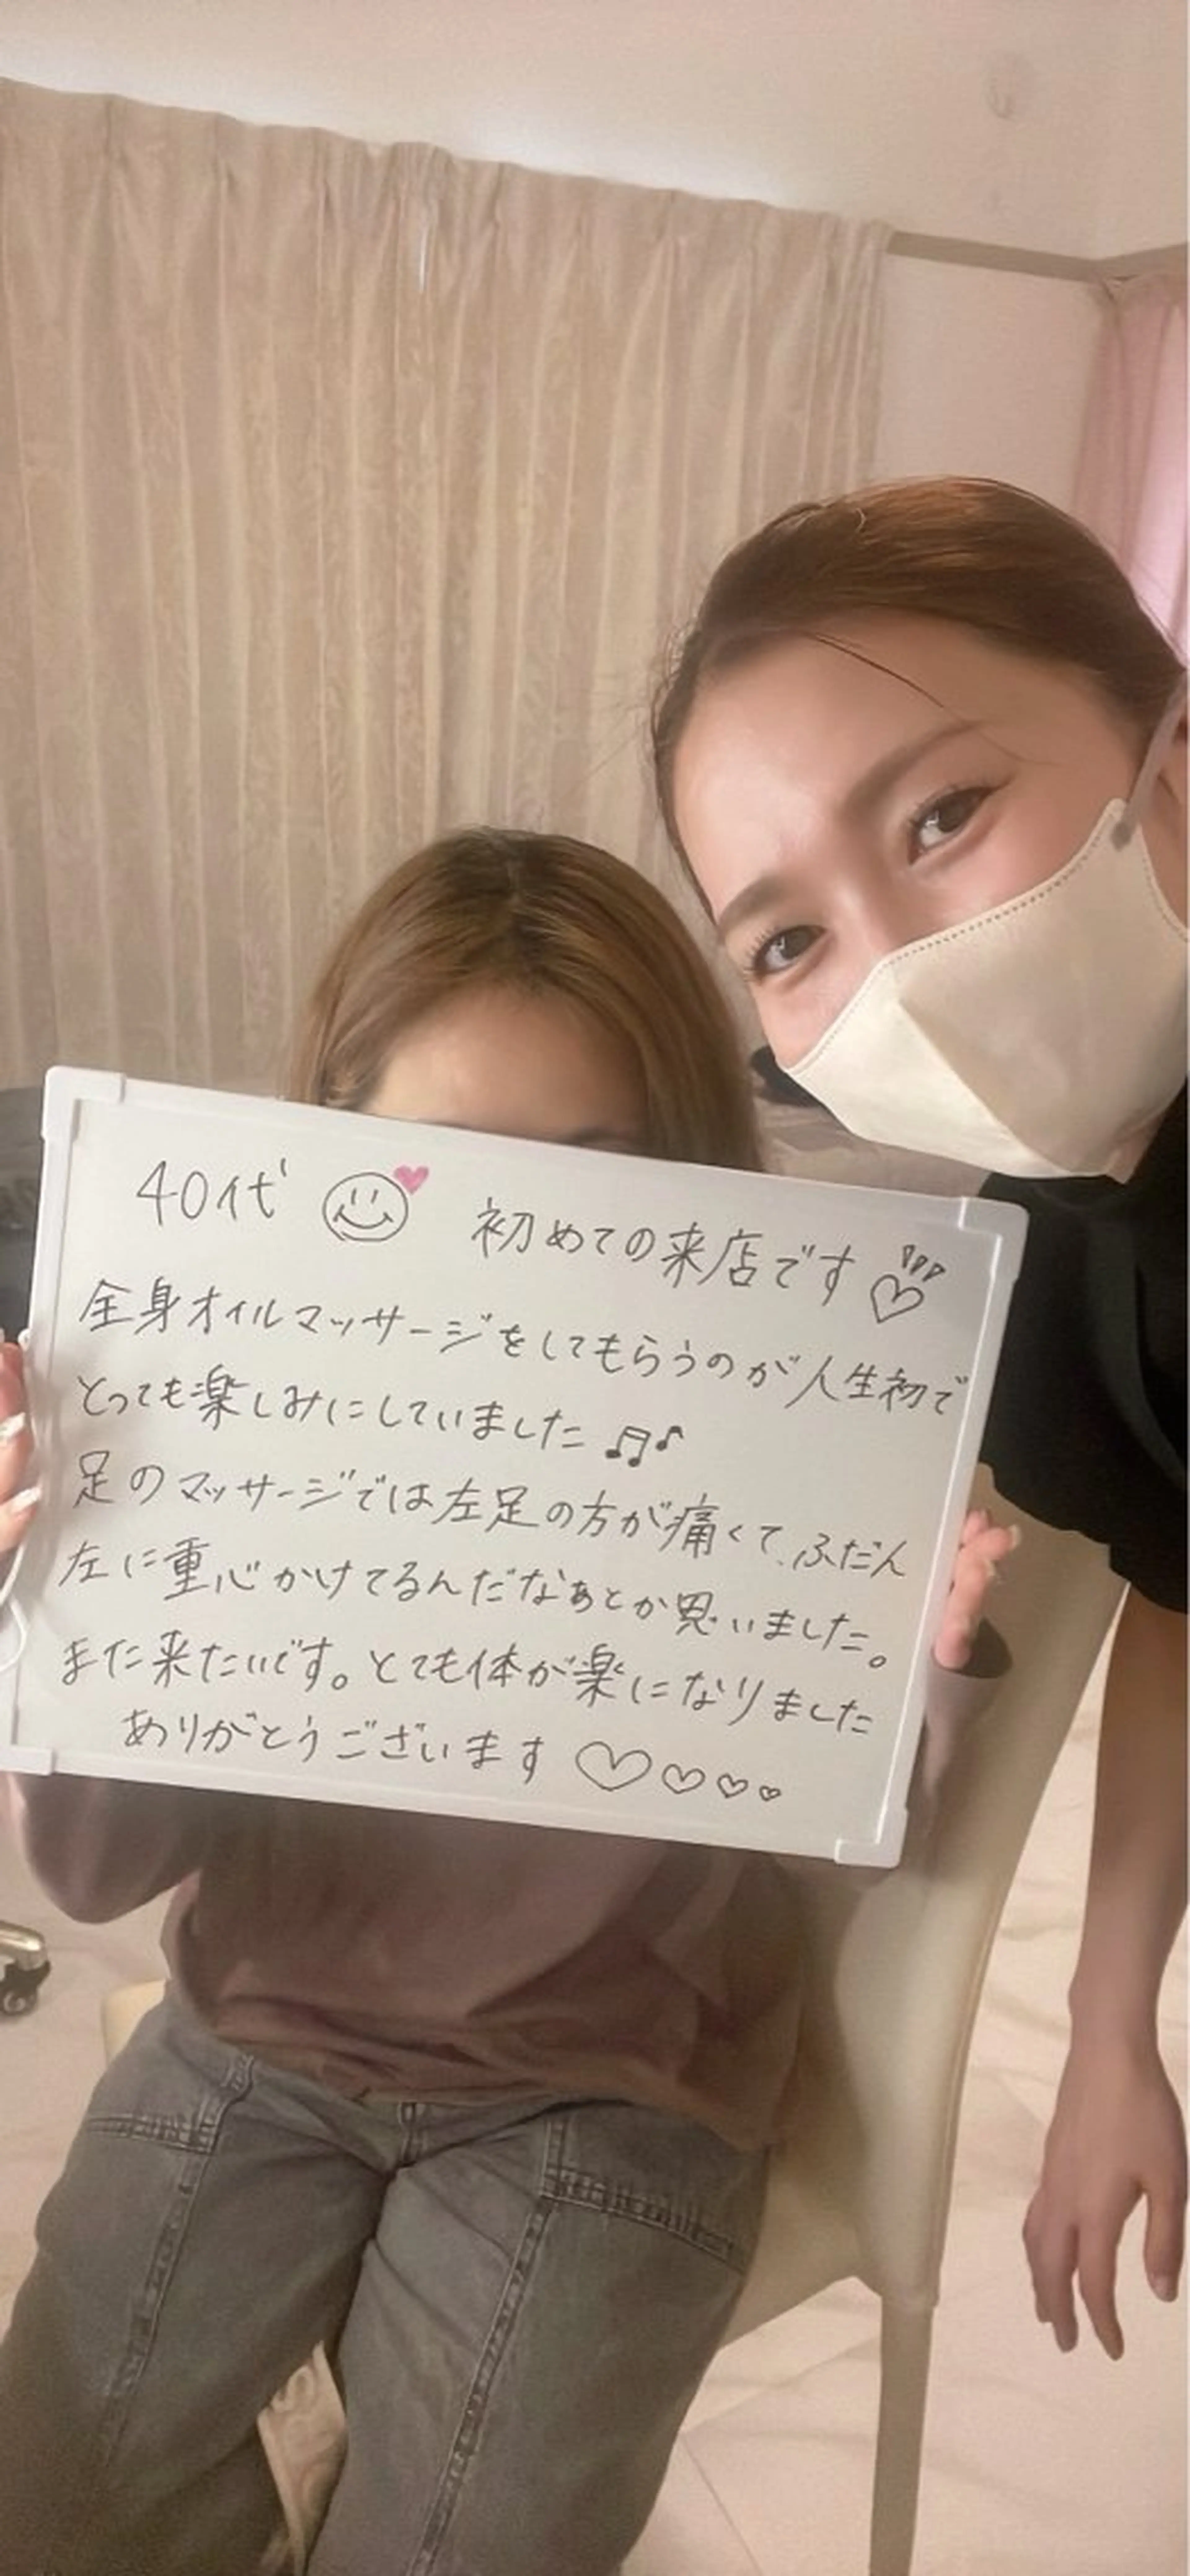 40代 初めての来店です
全身オイルマッサージをしてもらうのが人生初で
とっても楽しみにしていました♫♪
足のマッサージでは左足の方が痛くて、ふだん
左に重心かけてるんだなぁとか思いました。
また来たいです。とても体が楽になりました
ありがとうございます♡♡♡♡